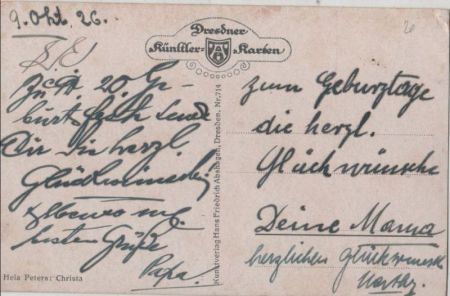 9. Okt. 26.
Dresdner
Künstler-Karten
20. Ge-
burtstag sende
Dir die herzl.
Glückwünsche
besten Grüße
Papa.
zum Geburtstage
die herzl.
Glückwünsche
Deine Mama
herzlichen Glückwunsch
Kunstverlag Hans Friedrich Abshagen, Dresden. Nr. 714
Hela Peters: Christa